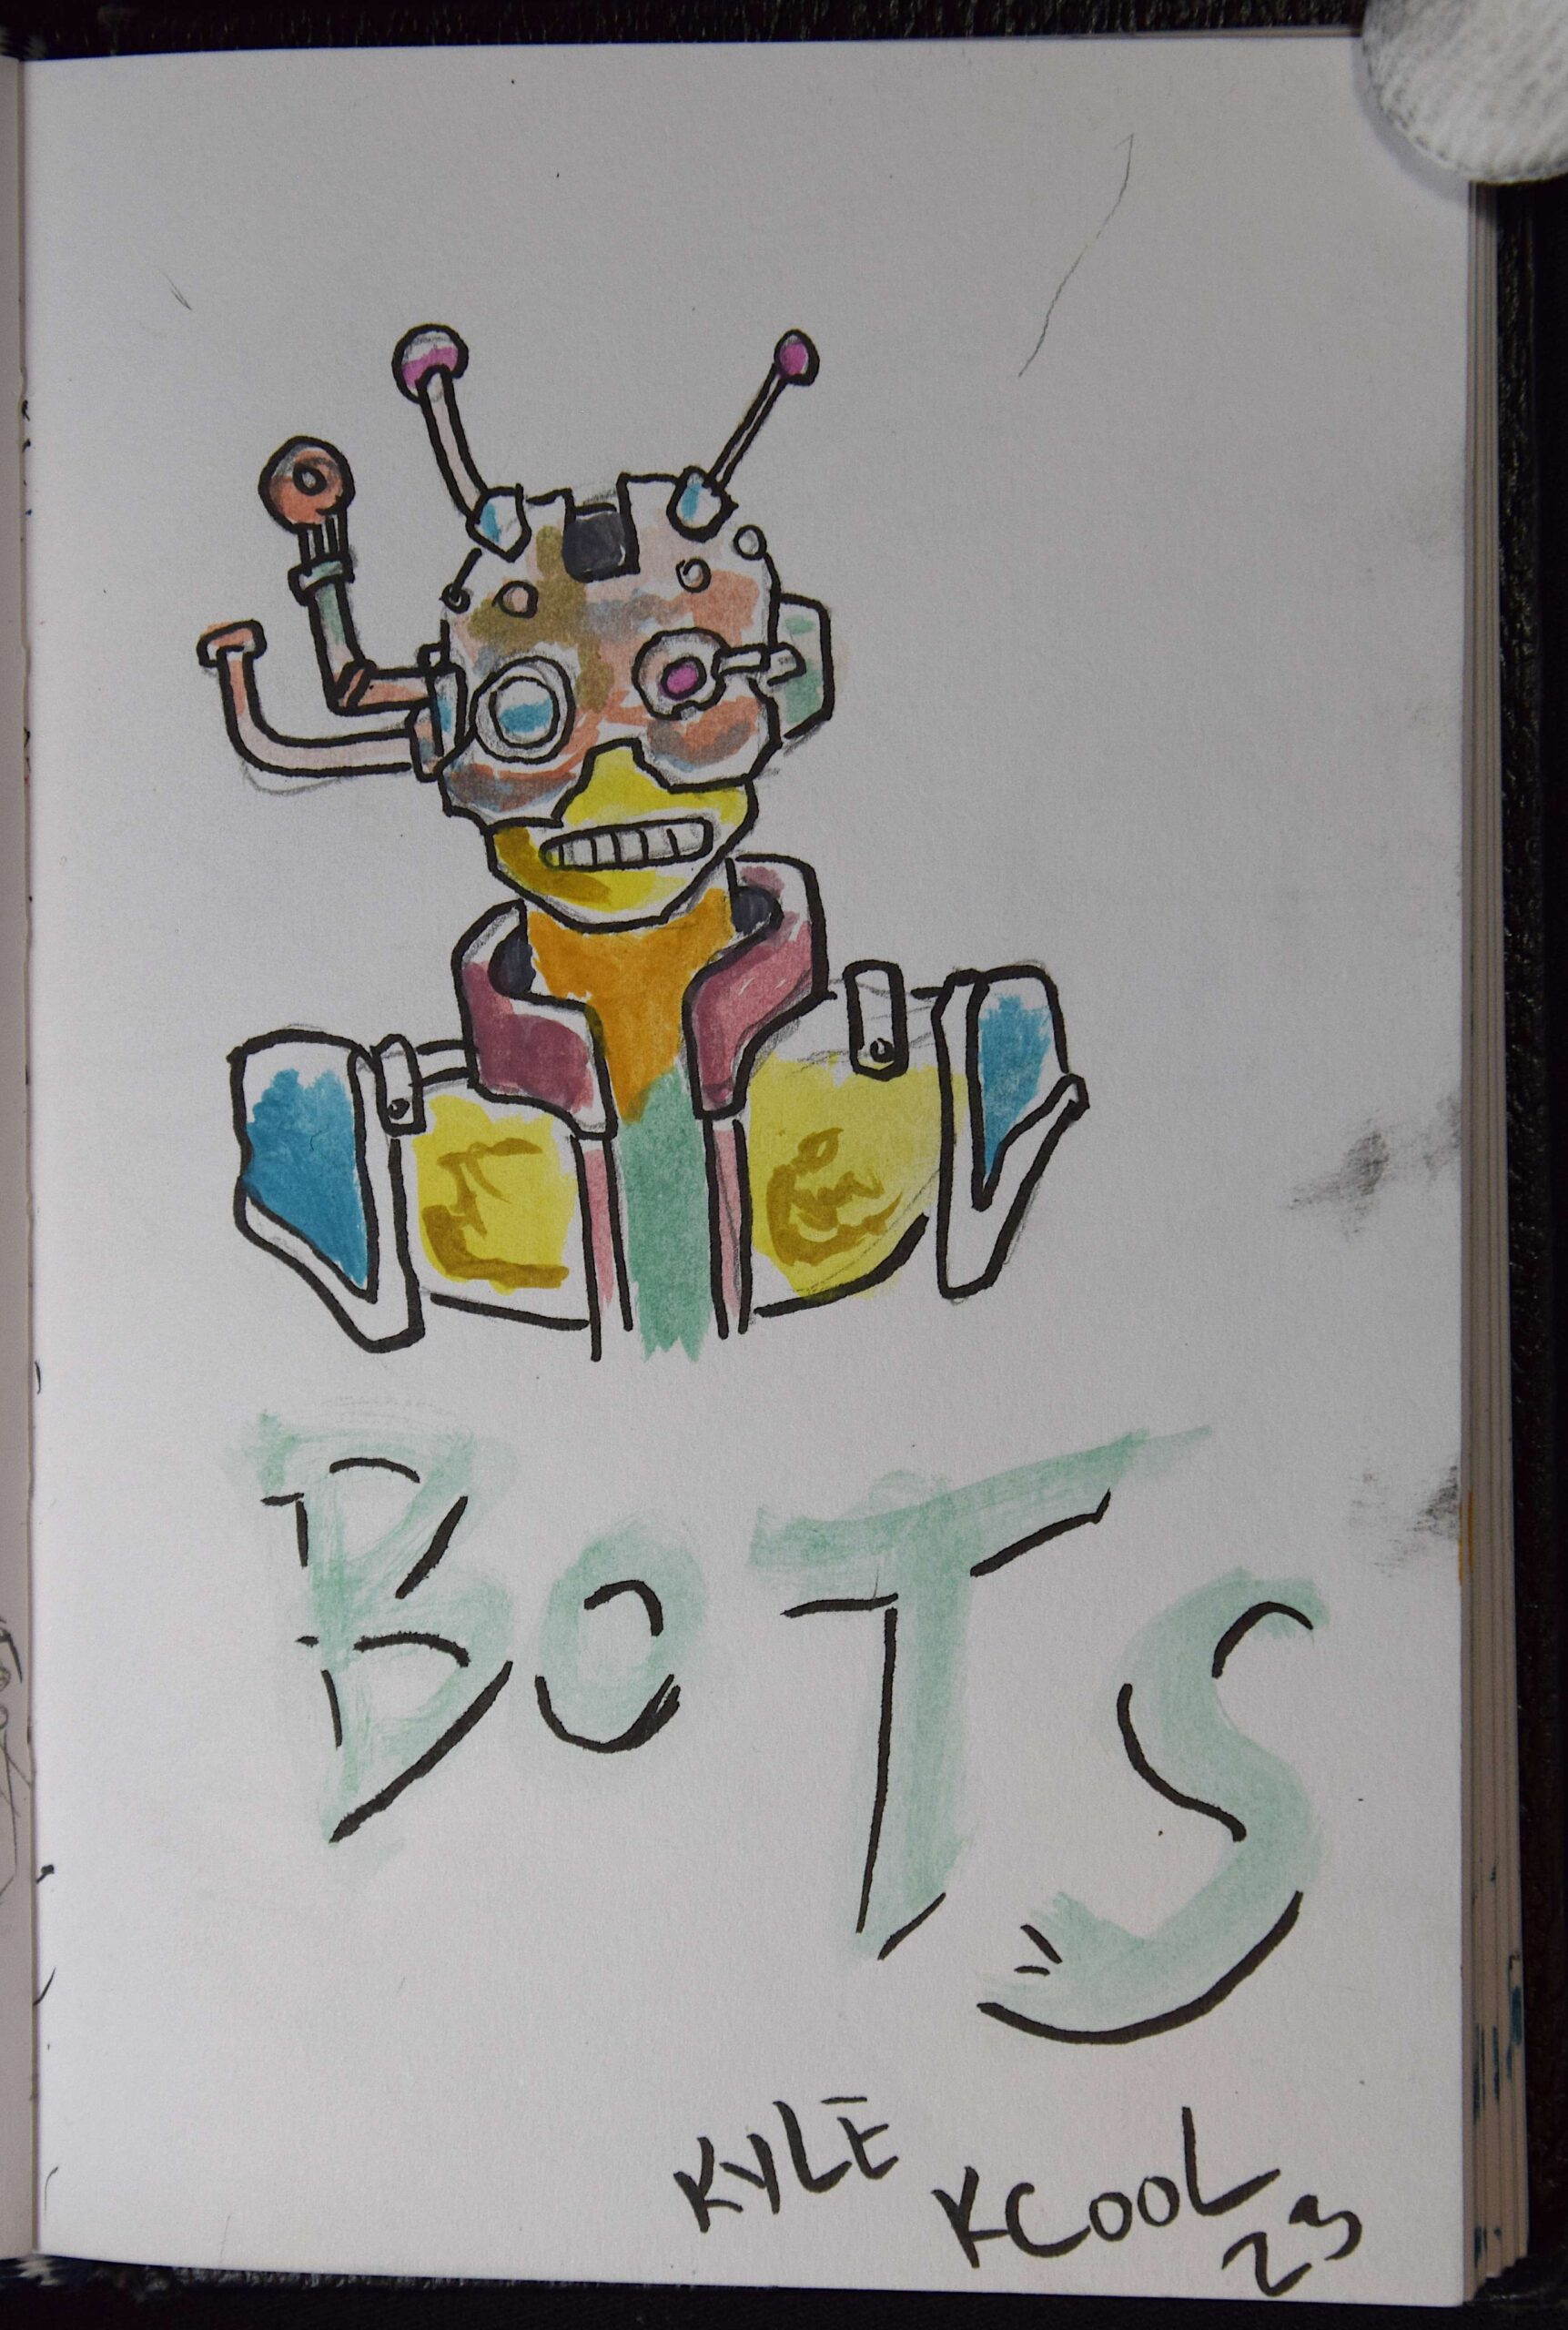 BOTS
KYLE KCOOL
23